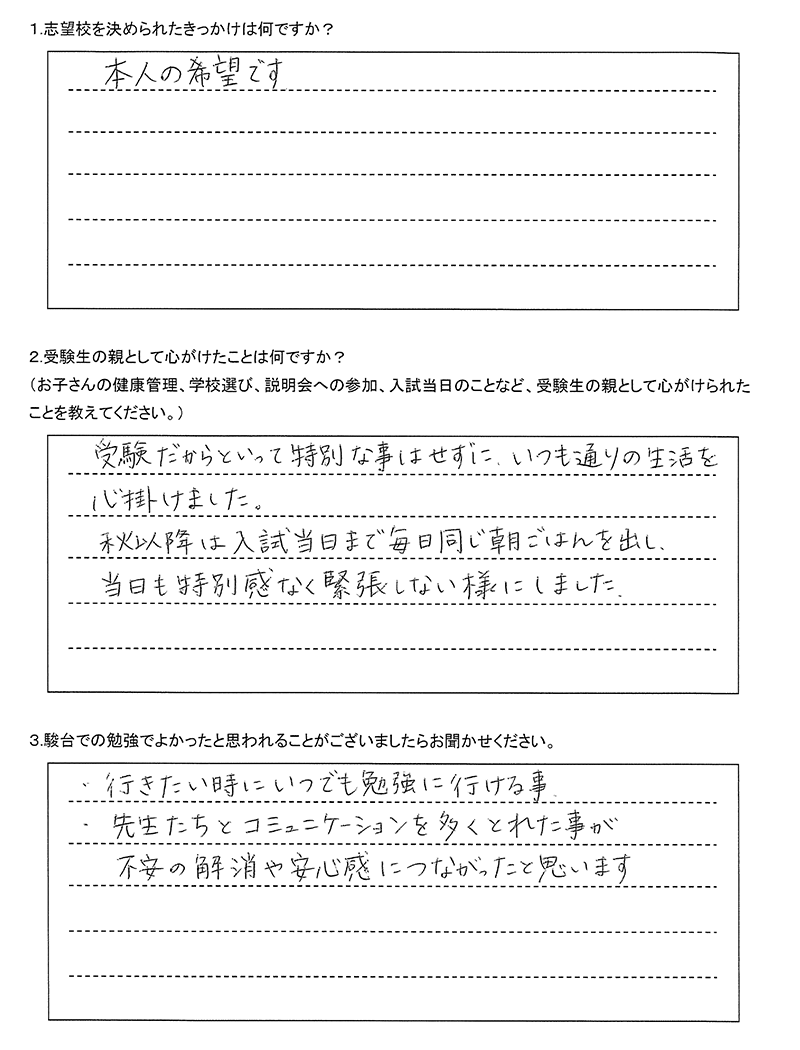 1.志望校を決められたきっかけは何ですか？
本人の希望です
2.受験生の親として心がけたことは何ですか？
（お子さんの健康管理、学校選び、説明会への参加、入試当日のことなど、受験生の親として心がけられた
ことを教えてください。）
受験だからといって特別な事はせずに、いつも通りの生活を
心掛けました。
秋以降は入試当日まで毎日同じ朝ごはんを出し、
当日も特別感なく緊張しない様にしました。
3.駿台での勉強でよかったと思われることがございましたらお聞かせください。
・行きたい時にいつでも勉強に行ける事。
・先生たちとコミュニケーションを多くとれた事が
不安の解消や安心感につながったと思います